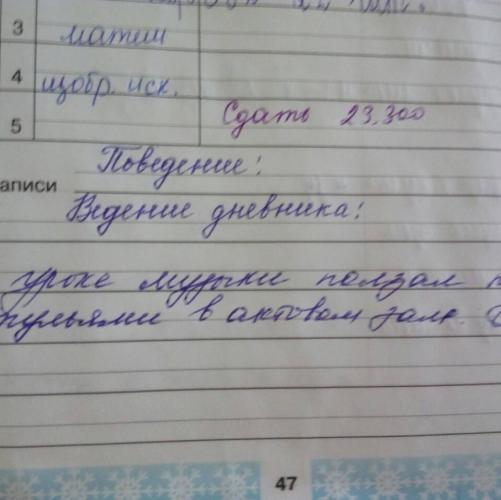 3 матем
4 изобр. иск.
5 Сдать 23.300
Поведение:
аписи
Ведение дневника:
уроке музыки ползал п
тульями в актовом зале.
47